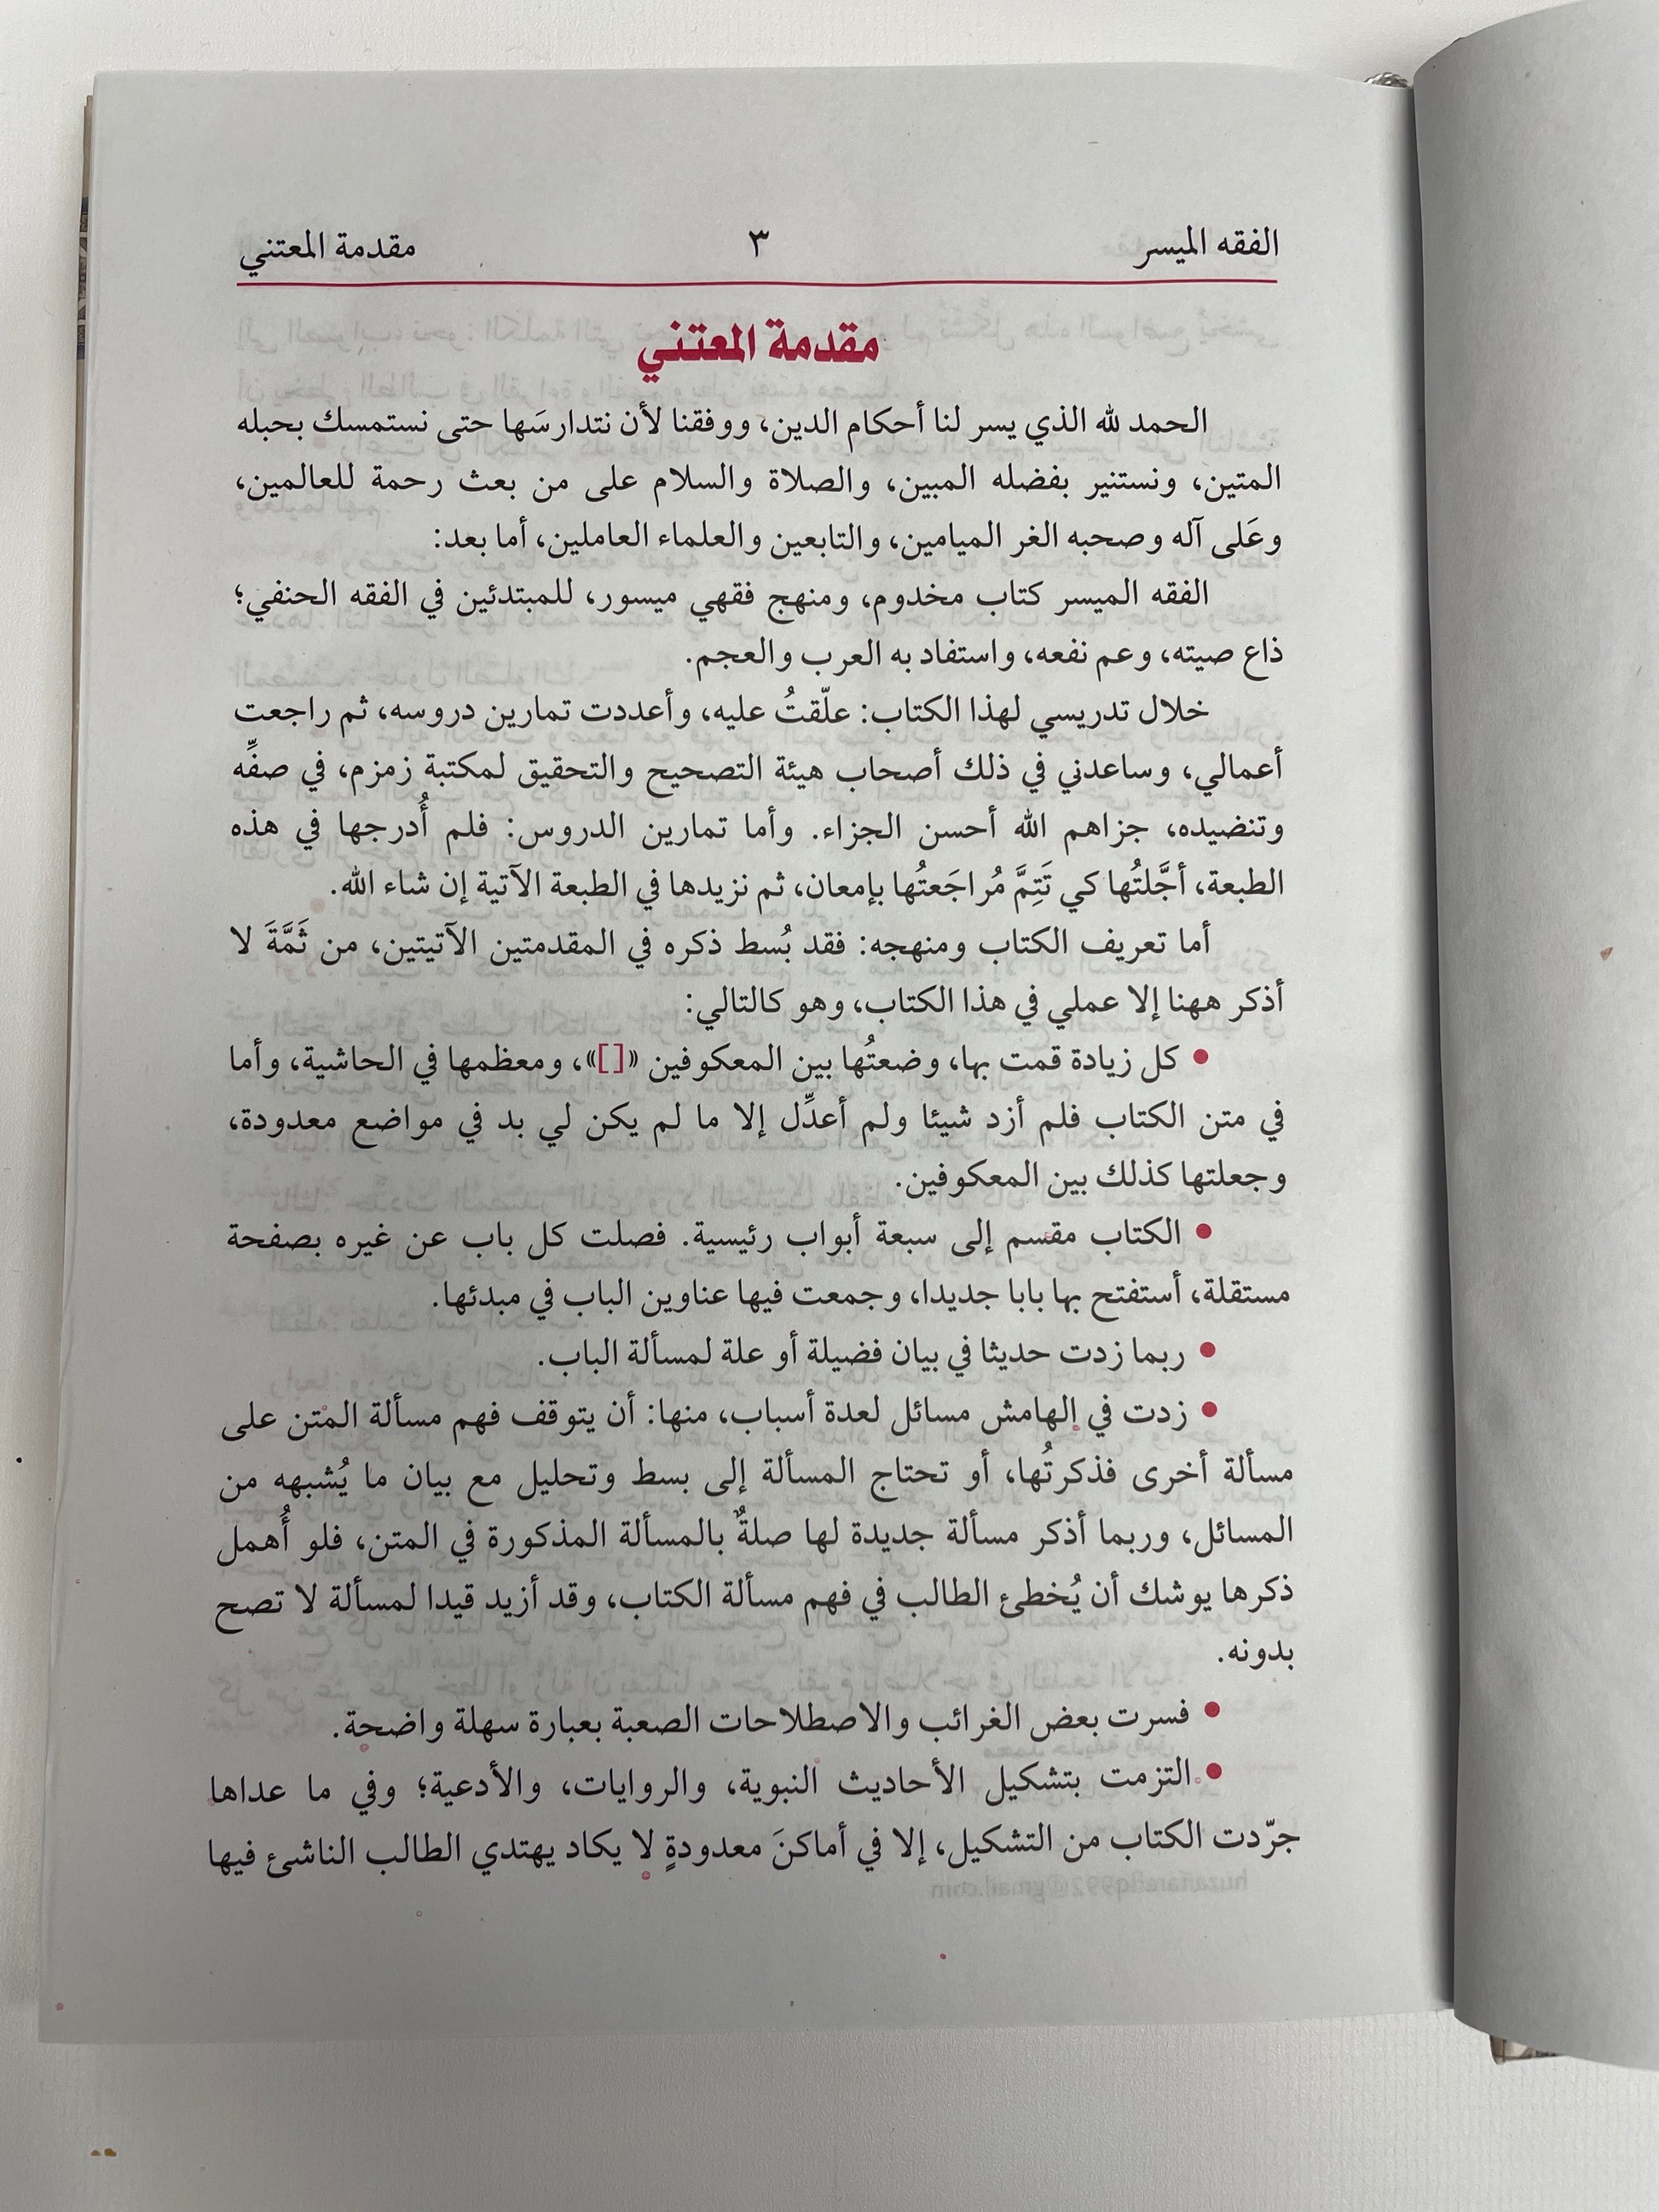 الفقه الميسر ٣ مقدمة المعتني
مقدمة المعتني
الحمد لله الذي يسر لنا أحكام الدين، ووفقنا لأن نتدارسَها حتى نستمسك بحبله
المتين، ونستنير بفضله المبين، والصلاة والسلام على من بعث رحمة للعالمين،
وعَلى آله وصحبه الغر الميامين، والتابعين والعلماء العاملين، أما بعد:
الفقه الميسر كتاب مخدوم، ومنهج فقهي ميسور، للمبتدئين في الفقه الحنفي؛
ذاع صيته، وعم نفعه، واستفاد به العرب والعجم.
خلال تدريسي لهذا الكتاب: علّقتُ عليه، وأعددت تمارين دروسه، ثم راجعت
أعمالي، وساعدني في ذلك أصحاب هيئة التصحيح والتحقيق لمكتبة زمزم، في صفِّه
وتنضيده، جزاهم الله أحسن الجزاء. وأما تمارين الدروس: فلم أُدرجها في هذه
الطبعة، أجَّلتُها كي تَتِمَّ مُراجَعتُها بإمعان، ثم نزيدها في الطبعة الآتية إن شاء الله.
أما تعريف الكتاب ومنهجه: فقد بُسط ذكره في المقدمتين الآتيتين، من ثَمَّةَ لا
أذكر ههنا إلا عملي في هذا الكتاب، وهو كالتالي:
● كل زيادة قمت بها، وضعتُها بين المعكوفين «[]»، ومعظمها في الحاشية، وأما
في متن الكتاب فلم أزد شيئا ولم أعدِّل إلا ما لم يكن لي بد في مواضع معدودة،
وجعلتها كذلك بين المعكوفين.
● الكتاب مقسم إلى سبعة أبواب رئيسية. فصلت كل باب عن غيره بصفحة
مستقلة، أستفتح بها بابا جديدا، وجمعت فيها عناوين الباب في مبدئها.
● ربما زدت حديثا في بيان فضيلة أو علة لمسألة الباب.
● زدت في الهامش مسائل لعدة أسباب، منها: أن يتوقف فهم مسألة المتن على
مسألة أخرى فذكرتُها، أو تحتاج المسألة إلى بسط وتحليل مع بيان ما يُشبهه من
المسائل، وربما أذكر مسألة جديدة لها صلةٌ بالمسألة المذكورة في المتن، فلو أُهمل
ذكرها يوشك أن يُخطئ الطالب في فهم مسألة الكتاب، وقد أزيد قيدا لمسألة لا تصح
بدونه.
● فسرت بعض الغرائب والاصطلاحات الصعبة بعبارة سهلة واضحة.
● التزمت بتشكيل الأحاديث النبوية، والروايات، والأدعية؛ وفي ما عداها
جرّدت الكتاب من التشكيل، إلا في أماكنَ معدودةٍ لا يكاد يهتدي الطالب الناشئ فيها